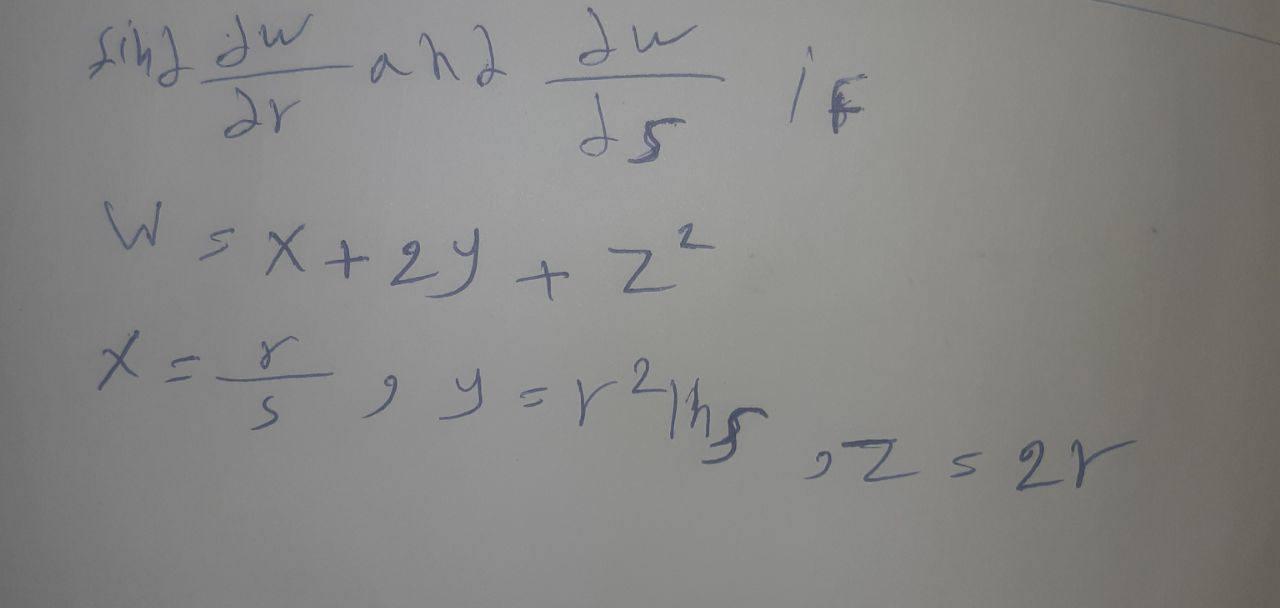 find ∂w/∂r and ∂w/∂s if
W = x + 2y + z²
x = r/s, y = r² ln s, z = 2r